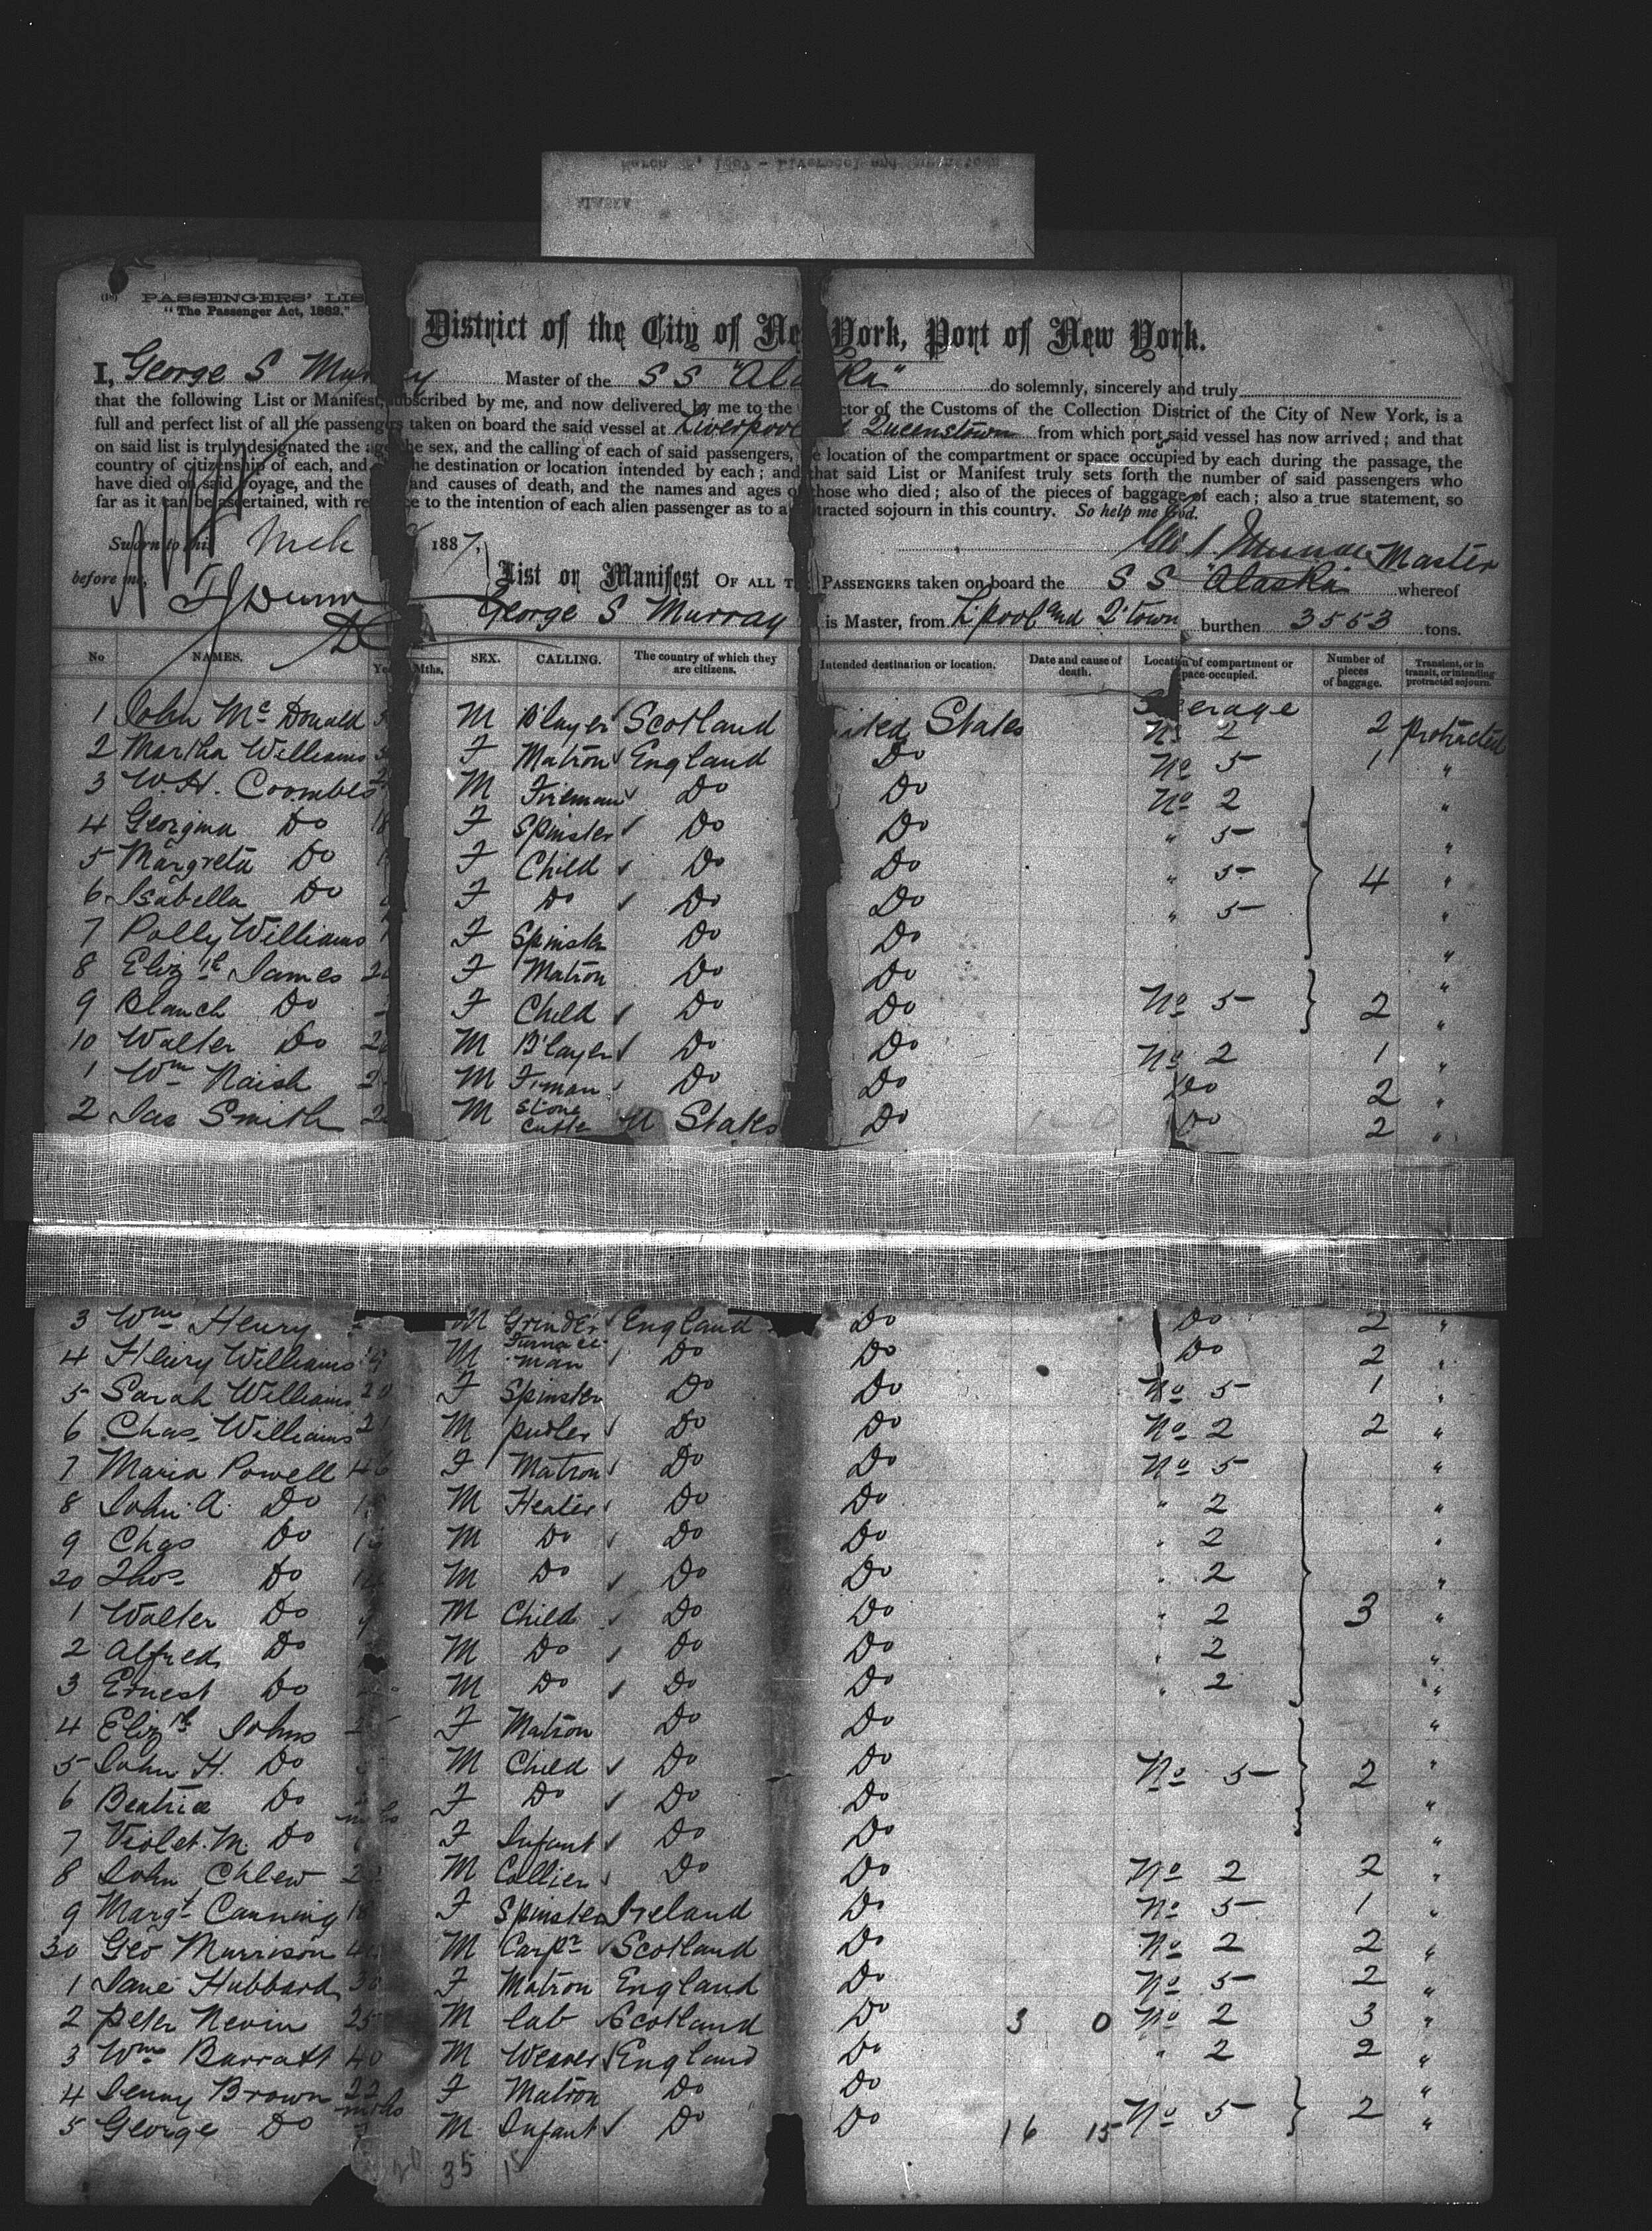 ALASKA
(18) PASSENGERS' LIS
"The Passenger Act, 1882."
District of the City of Ne York, Port of New York.
I, George S Mur y Master of the S S "Ala ka" do solemnly, sincerely and truly
that the following List or Manifest, subscribed by me, and now delivered by me to the ctor of the Customs of the Collection District of the City of New York, is a
full and perfect list of all the passengers taken on board the said vessel at Liverpool Queenstown from which port said vessel has now arrived; and that
on said list is truly designated the age he sex, and the calling of each of said passengers, e location of the compartment or space occupied by each during the passage, the
country of citizenship of each, and he destination or location intended by each; and that said List or Manifest truly sets forth the number of said passengers who
have died on said voyage, and the and causes of death, and the names and ages o those who died; also of the pieces of baggage of each; also a true statement, so
far as it can be ascertained, with re ce to the intention of each alien passenger as to a tracted sojourn in this country. So help me God.
Sworn to this Mch 1887, Geo S. Murray Master
before me, List or Manifest OF ALL T PASSENGERS taken on board the S S "Alaska" whereof
George S Murray is Master, from L'pool and Q'town burthen 3553 tons.
No NAMES. Ye Mths. SEX. CALLING. The country of which they are citizens. Intended destination or location. Date and cause of death. Location of compartment or space occupied. Number of pieces of baggage. Transient, or in transit, or intending protracted sojourn.
1 John Mc Donald M B'layer Scotland ited States erage No 2 2 Protracted
2 Martha Williams F Matron England Do No 5 1 "
3 W. H. Coombes M Fireman Do Do No 2 "
4 Georgina Do 18 F Spinster Do Do " 5 "
5 Margreta Do F Child Do Do " 5 4 "
6 Isabella Do F Do Do Do " 5 "
7 Polly Williams F Spinster Do Do "
8 Elizth James F Matron Do Do "
9 Blanch Do F Child Do Do No 5 2 "
10 Walter Do M B'layer Do Do No 2 1 "
1 Wm Naish M F'man Do Do Do 2 "
2 Jas Smith M Stone Cutter U States Do Do 2 "
3 Wm Henry M Grinder England Do Do 2 "
4 Henry Williams M Furnace man Do Do Do 2 "
5 Sarah Williams 20 F Spinster Do Do No 5 1 "
6 Chas Williams M Pudler Do Do No 2 2 "
7 Maria Powell 46 F Matron Do Do No 5 "
8 John A. Do M Heater Do Do " 2 "
9 Chas Do M Do Do Do " 2 "
20 Thos Do M Do Do Do " 2 "
1 Walter Do 9 M Child Do Do " 2 3 "
2 Alfred Do M Do Do Do " 2 "
3 Ernest Do M Do Do Do " 2 "
4 Elizth Johns F Matron Do Do "
5 John H. Do M Child Do Do No 5 2 "
6 Beatrice Do F Do Do Do "
7 Violet. M. Do mths F Infant Do Do "
8 John Chlew M Collier Do Do No 2 2 "
9 Margt Canning 18 F Spinster Ireland Do No 5 1 "
30 Geo Murrison M Carpr Scotland Do No 2 2 "
1 Jane Hubbard 30 F Matron England Do No 5 2 "
2 Peter Nevin 25 M lab Scotland Do 3 0 No 2 3 "
3 Wm Barratt 40 M Weaver England Do " 2 2 "
4 Jenny Brown 22 F Matron Do Do "
5 George Do mths M Infant Do Do 16 15 No 5 2 "
35